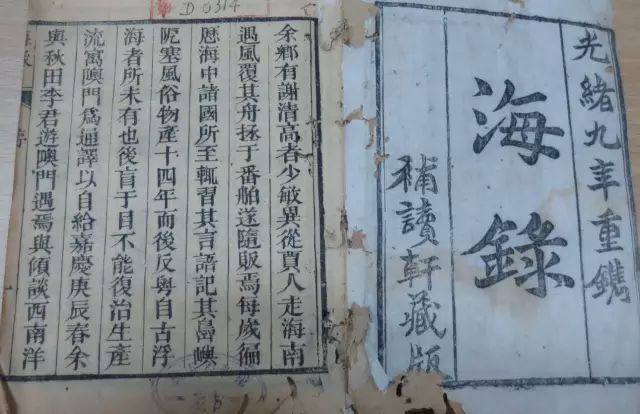 光緒九年重鐫
海錄
補讀軒藏版
D0314
余鄉有謝清高者少敏異從賈人走海南
遇風覆其舟拯于番舶遂隨販焉每歲徧
歷海中諸國所至輒習其言語記其島嶼
阨塞風俗物產十四年而後反粵自古浮
海者所未有也後盲于目不能復治生產
流寓嶴門為通譯以自給嘉慶庚辰春余
與秋田李君遊嶴門遇焉與傾談西南洋